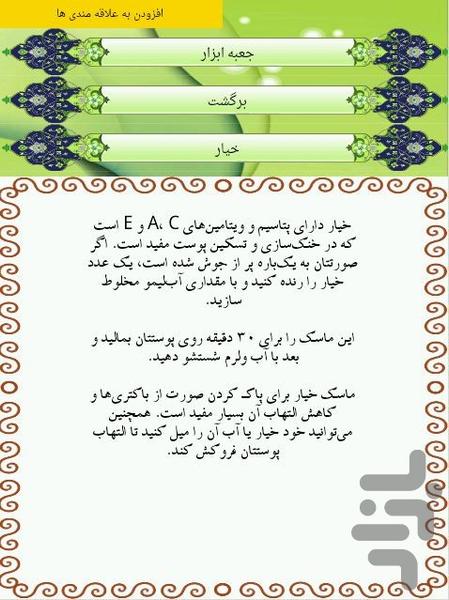 افزودن به علاقه مندی ها
جعبه ابزار
برگشت
خیار
خیار دارای پتاسیم و ویتامین‌های A، C و E است
که در خنک‌سازی و تسکین پوست مفید است. اگر
صورتتان به یک‌باره پر از جوش شده است، یک عدد
خیار را رنده کنید و با مقداری آب‌لیمو مخلوط
سازید.
این ماسک را برای ۳۰ دقیقه روی پوستتان بمالید و
بعد با آب ولرم شستشو دهید.
ماسک خیار برای پاک کردن صورت از باکتری‌ها و
کاهش التهاب آن بسیار مفید است. همچنین
می‌توانید خود خیار یا آب آن را میل کنید تا التهاب
پوستتان فروکش کند.
بازار